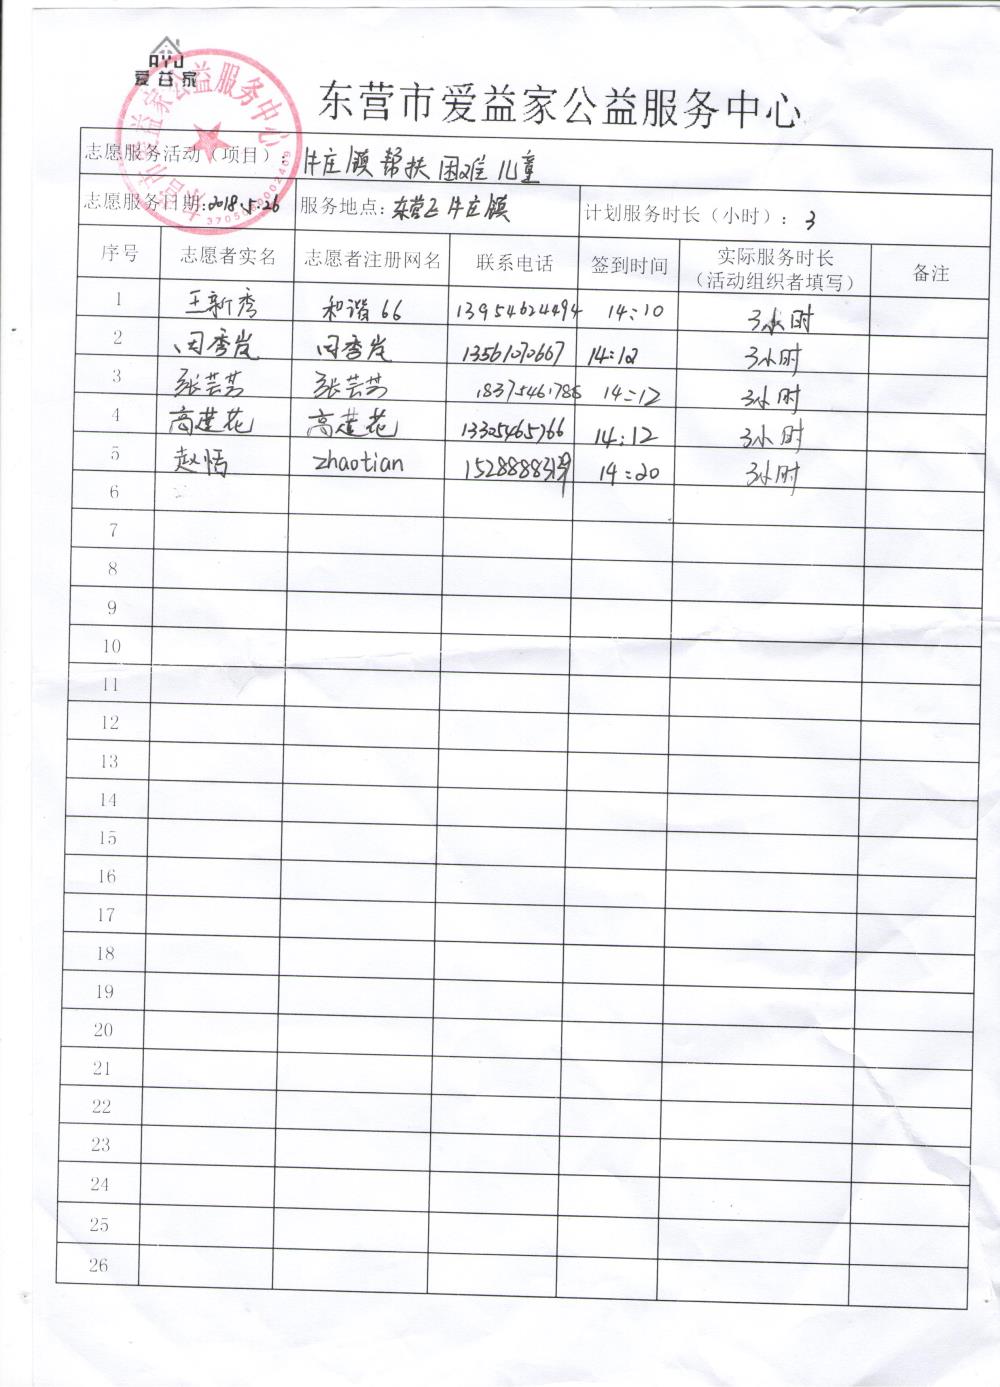 AYJ
爱益家
东营市爱益家公益服务中心
东营市爱益家公益服务中心
3705000002409
志愿服务活动（项目）: 牛庄镇帮扶困难儿童
志愿服务日期:2018.5.26 服务地点:东营区牛庄镇 计划服务时长（小时）: 3
序号 志愿者实名 志愿者注册网名 联系电话 签到时间 实际服务时长（活动组织者填写） 备注
1 王新秀 和谐66 13954624494 14:10 3小时
2 闵秀岌 闵秀岌 14:12 3小时
3 张芸芸 张芸芸 18375461786 14:12 3小时
4 高莲花 高莲花 13305465766 14:12 3小时
5 赵恬 zhaotian 14:20 3小时
6
7
8
9
10
11
12
13
14
15
16
17
18
19
20
21
22
23
24
25
26